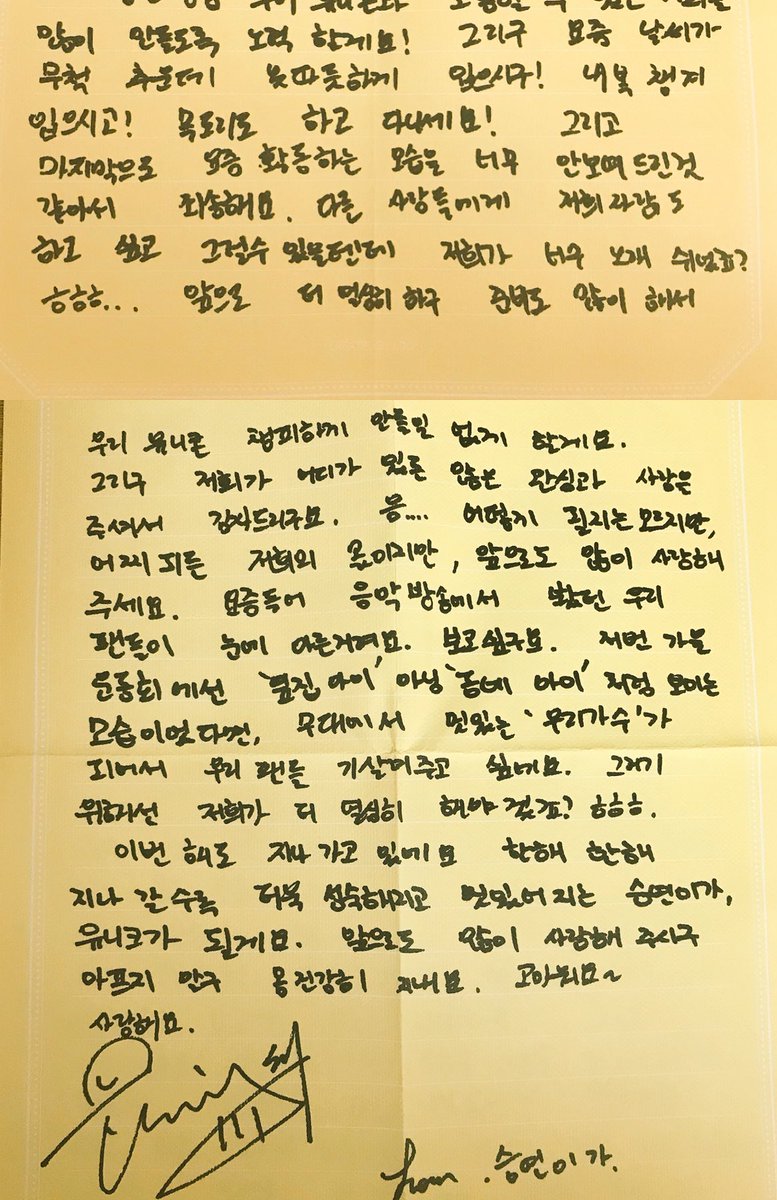 우리 유니콘과
많이 만들도록 노력 할게요! 그리구 요즘 날씨가
무척 추운데 옷따뜻하게 입으시구! 내복 챙겨
입으시고! 목도리도 하고 다니세요! 그리고
마지막으로 요즘 활동하는 모습을 너무 안보여 드린것
같아서 죄송해요. 다른 사람들에게 저희 자랑도
하고 싶고 그럴수 있을텐데 저희가 너무 오래 쉬었죠?
ㅎㅎㅎ... 앞으로 더 열심히 하구 준비도 많이 해서
우리 유니콘 챙피하게 만들일 없게 할게요.
그리구 저희가 어디가 있든 많은 관심과 사랑은
주셔서 감사드리구요. 음.... 어떻게 필지는 모르지만,
어찌 피든 저희의 몫이지만, 앞으로도 많이 사랑해
주세요. 요즘들어 음악방송에서 봤던 우리
팬들이 눈에 아른거려요. 보고싶구요. 저번 가을
운동회에선 '옆집 아이' 아닝 '동네 아이' 처럼 보이는
모습이었다면, 무대에서 멋있는 '우리가수'가
되어서 우리 팬들 기살려주고 싶네요. 그러기
위해선 저희가 더 열심히 해야 겠죠? ㅎㅎㅎ.
이번 해도 지나 가고 있네요 한해 한해
지나 갈 수록 더욱 성숙해지고 멋있어 지는 승연이가,
유니크가 될게요. 앞으로도 많이 사랑해 주시구
아프지 말구 몸 건강히 지내요. 고마워요~
사랑해요.
from. 승연이가.